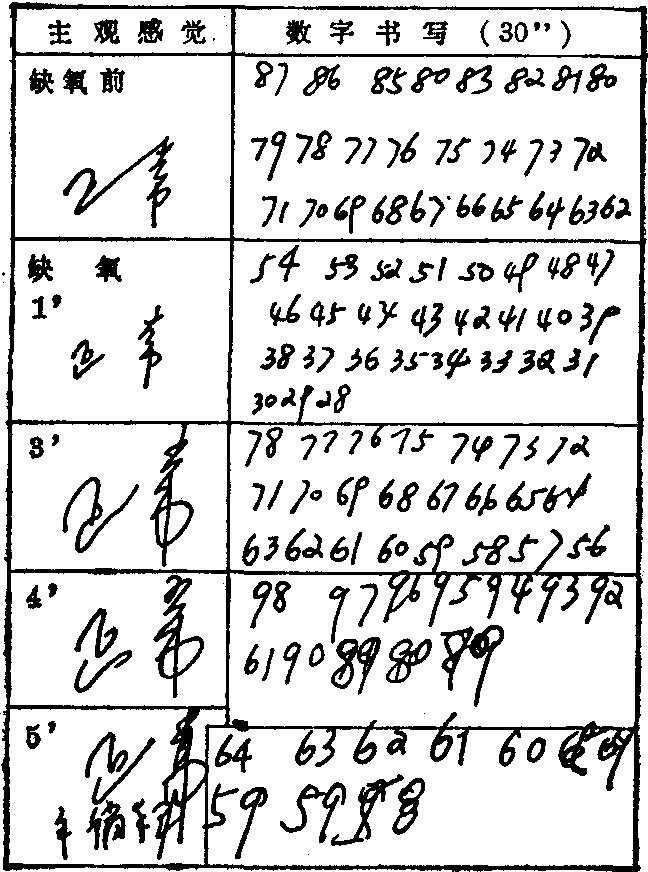 主观感觉 数字书写（30”）
缺氧前
87 86 85 80 83 82 81 80
正常
79 78 77 76 75 74 73 72
71 70 69 68 67 66 65 64 63 62
缺氧
1’
54 53 52 51 50 49 48 47
正常
46 45 44 43 42 41 40 39
38 37 36 35 34 33 32 31
30 29 28
3’
78 77 76 75 74 73 72
正常
71 70 69 68 67 66 65 64
63 62 61 60 59 58 57 56
4’
98 97 96 95 94 93 92
正常
61 90 89 80 89
5’
64 63 62 61 60
正常
59 59 58